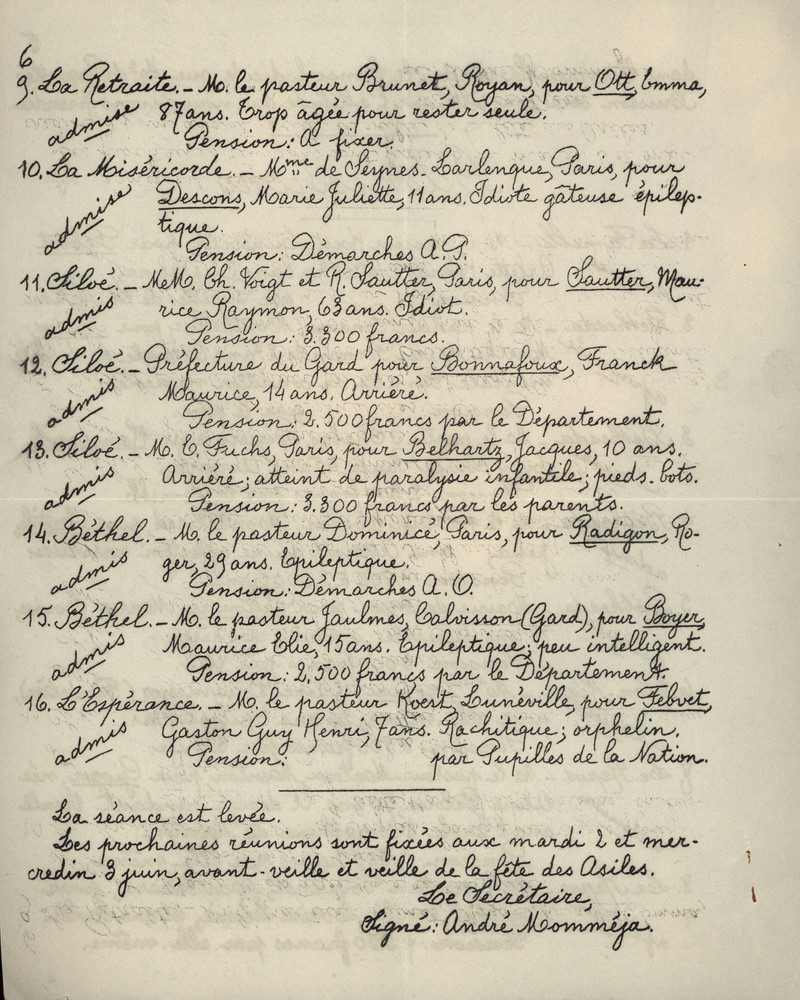 6
9. La Retraite. - M. le pasteur Brunet, Royan, pour Ott, Emma,
admise
87 ans. Trop âgée pour rester seule.
Pension: A fixer.
10. La Miséricorde. - Mme de Seynes-Larlenque, Paris, pour
admise
Descons, Marie Juliette, 11 ans. Idiote gâteuse épilep-
tique.
Pension: Démarches A.P.
11. Siloé. - MeM. Ch. Voigt et R. Sautter, Paris, pour Sautter, Mau-
admis
rice Raymon, 63 ans. Idiot.
Pension: 3.300 francs.
12. Siloé. - Préfecture du Gard pour Bonnafoux, Franck
admis
Maurice, 14 ans. Arriéré.
Pension: 2.500 francs par le Département.
13. Siloé. - M. E. Fuchs, Paris, pour Belhartz, Jacques, 10 ans.
admis
Arriéré; atteint de paralysie infantile; pieds-bots.
Pension: 3.300 francs par les parents.
14. Béthel. - M. le pasteur Dominicé, Paris, pour Radigon, Ro-
admis
ger, 29 ans. Epileptique.
Pension: Démarches A.O.
15. Béthel. - M. le pasteur Jaulmes, Calvisson (Gard), pour Boyer,
admis
Maurice Elie, 15 ans. Epileptique; peu intelligent.
Pension: 2,500 francs par le Département.
16. L'Espérance. - M. le pasteur Koest, Lunéville, pour Febvet,
admis
Gaston Guy Henri, 7 ans. Rachitique; orphelin.
Pension: par Pupilles de la Nation.
La séance est levée.
Les prochaines réunions sont fixées aux mardi 2 et mer-
credin 3 juin, avant-veille et veille de la fête des Asiles.
Le Secrétaire,
Signé: André Momméja.